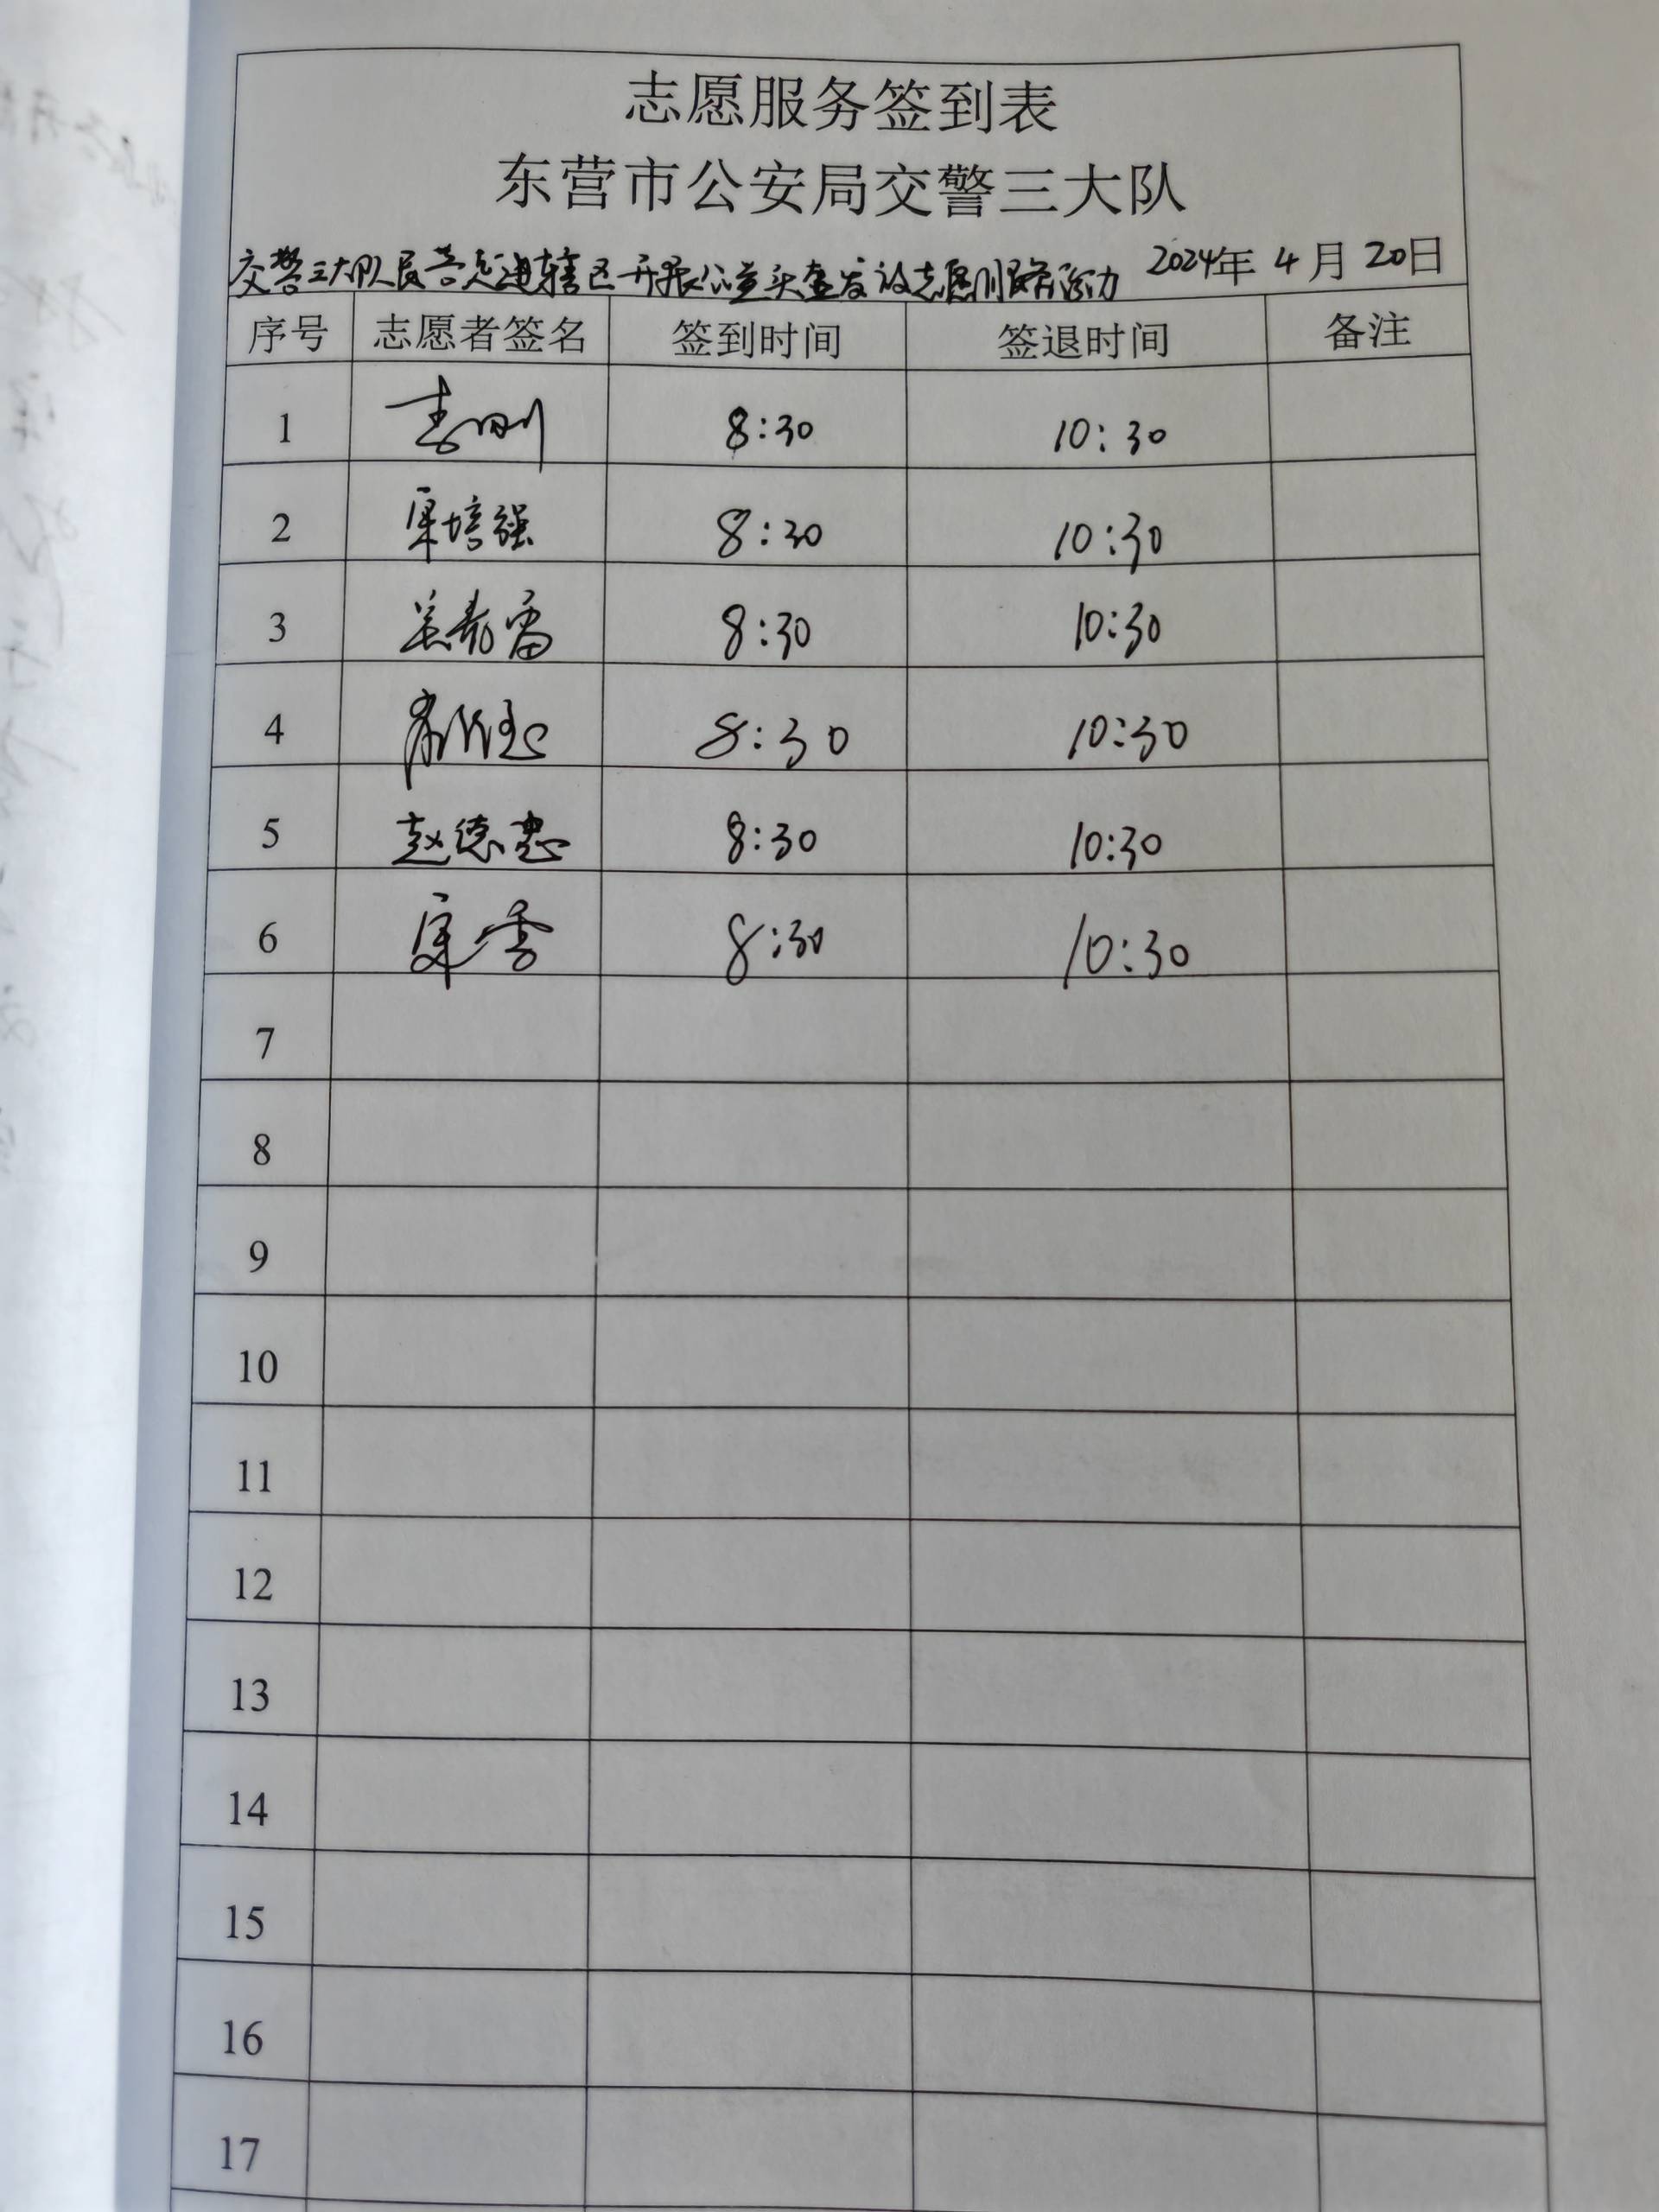 志愿服务签到表
东营市公安局交警三大队
交警三大队民警走进辖区开展公益头盔发放志愿服务活动 2024年 4 月 20日
序号 志愿者签名 签到时间 签退时间 备注
1 8:30 10:30
2 培强 8:30 10:30
3 8:30 10:30
4 8:30 10:30
5 赵德忠 8:30 10:30
6 8:30 10:30
7
8
9
10
11
12
13
14
15
16
17